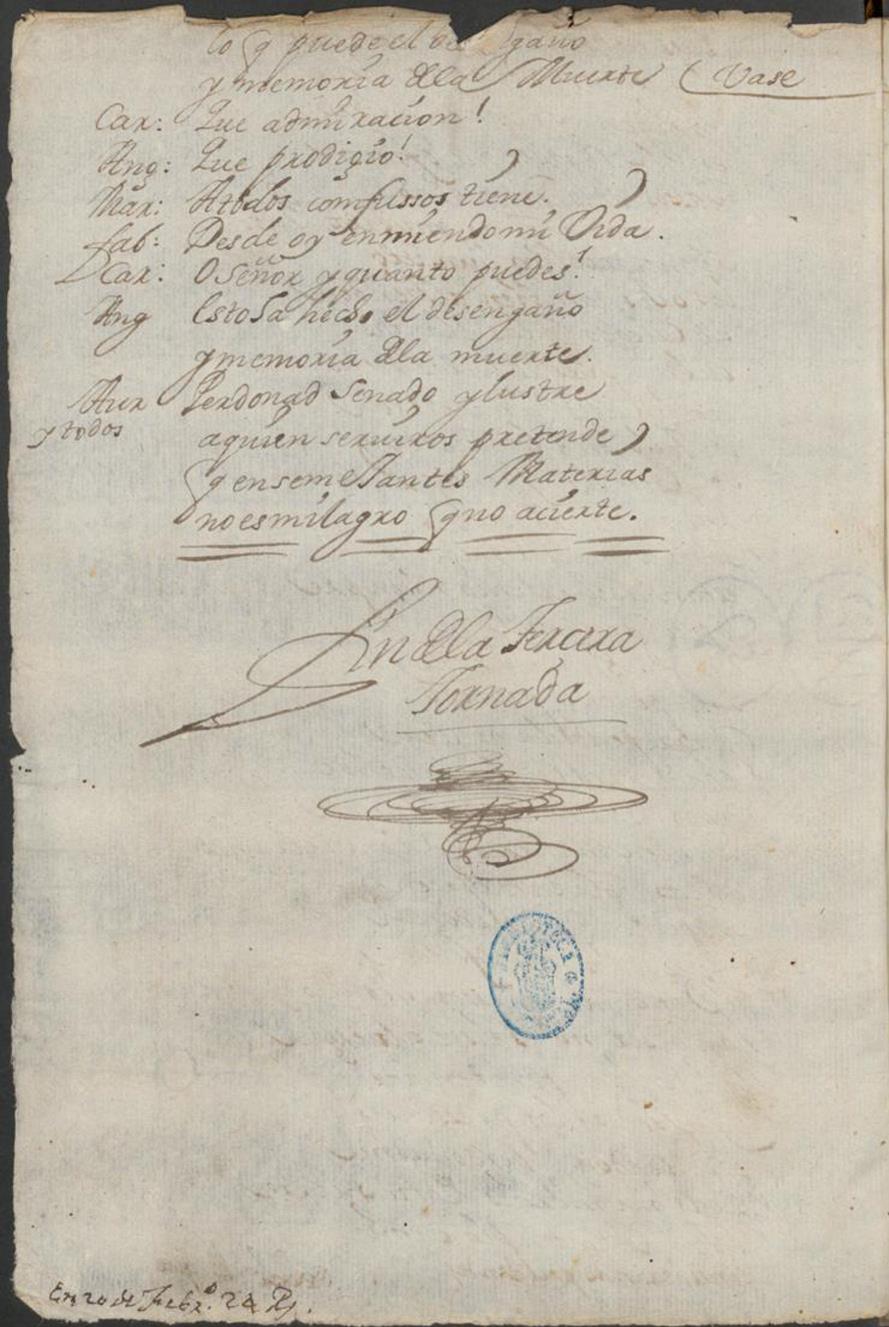 lo q puede el gaño
y memoria della Muerte (Vase
Car: Que admiracion!
Ang: Que prodigio!
Mar: Atodos confussos tiene.
fab: Desde oy enmiendo mi Vida.
Car: O Señor y quanto puedes!
Ang Esto ha hecho el desengaño
y memoria della muerte.
Aur Perdonad Senado ylustre
y todos aquien seruiros pretende
q en semeJantes Materias
no es milagro q no acierte.
Fin della Tercera
Jornada
BIBLIOTECA
En 20 de Febro. 24 Rs.